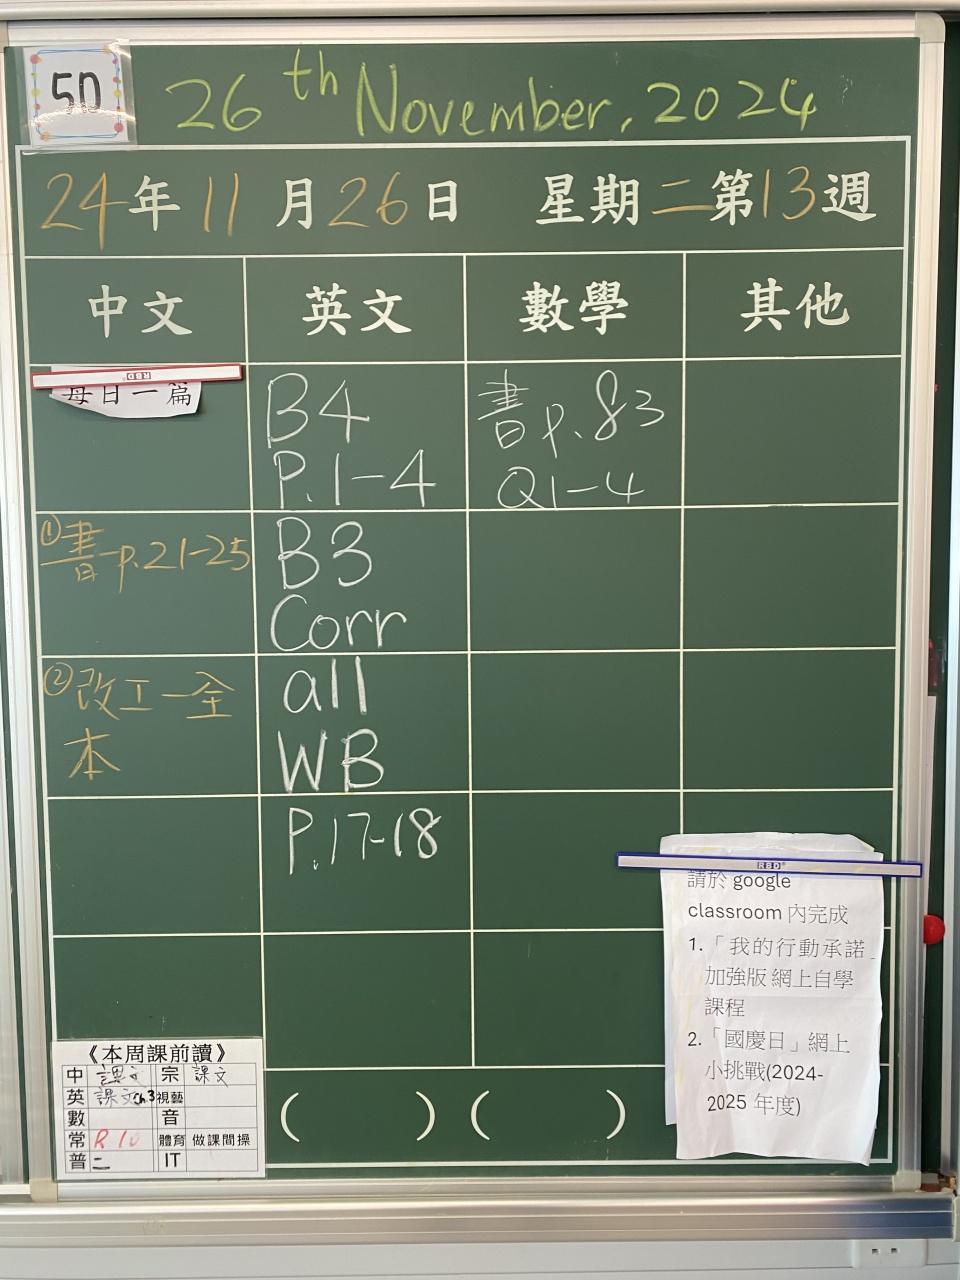 5D
26th November, 2024
24年11月26日 星期二第13週
中文 英文 數學 其他
RBD
每日一篇
B4
P.1-4
書p.83
Q1-4
①書p.21-25
B3
Corr
②改工一全
本
all
WB
P.17-18
RBD
請於 google
classroom 內完成
1.「我的行動承諾」
加強版 網上自學
課程
2.「國慶日」網上
小挑戰(2024-
2025 年度)
《本周課前讀》
中 課文 宗 課文
英 課文ch3 視藝
數 音
常 R 10 體育 做課間操
普 二 IT
( ) ( )